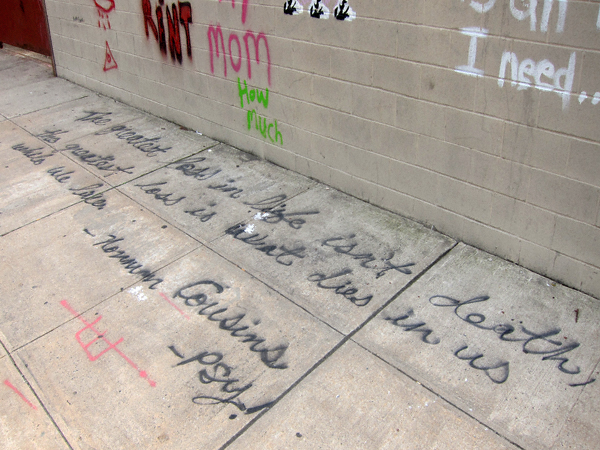 RINT
my
MOM
How
Much
all
I need...
The greatest loss in life isn't death,
the greatest loss is what dies in us
while we live.
- Norman Cousins
- psy!